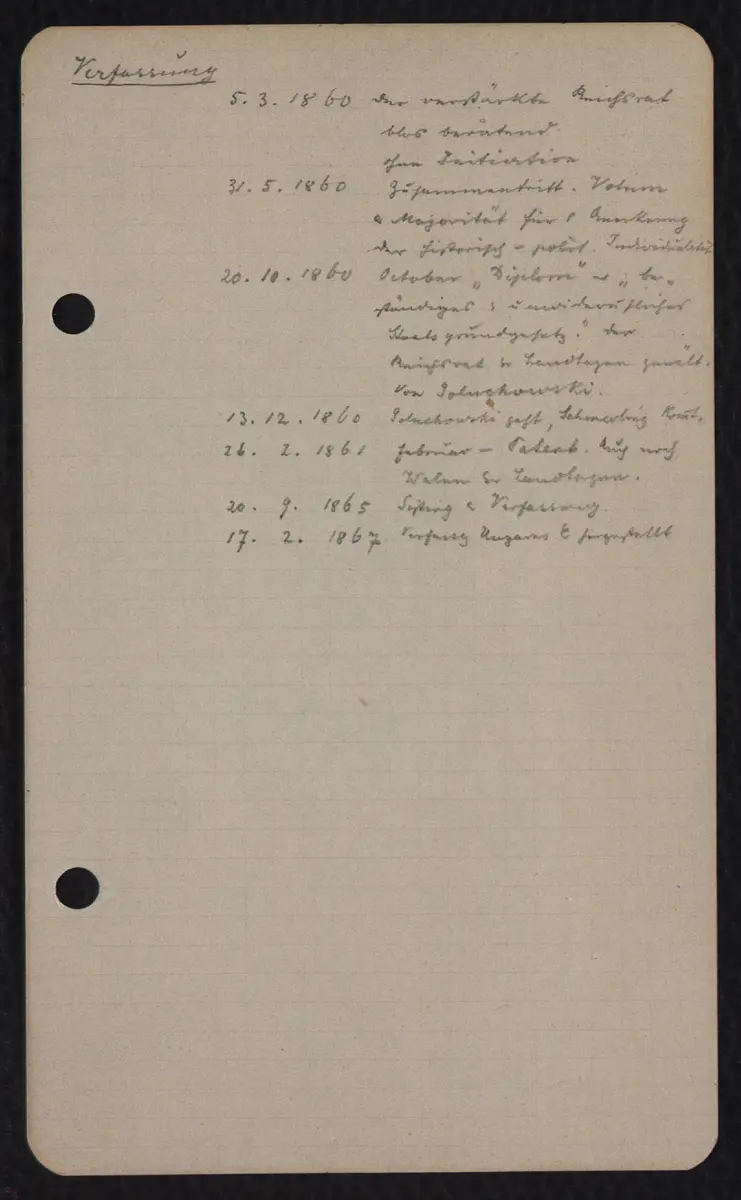 Verfassung
5. 3. 1860 der verstärkte Reichsrat
blos beratend
ohne Initiative
31. 5. 1860 Zusammentritt. Votum
d Majorität für Anerkennung
der historisch - polit. Individualität
20. 10. 1860 October „Diplom" „be-
ständiges & unwiderufliches
Staatsgrundgesetz." Der
Reichsrat Landtagen gewält.
Von Goluchowski.
13. 12. 1860 Goluchowski geht, Schmerling kommt.
26. 2. 1861 Februar - Patent. Auch noch
Walen Landtagen.
20. 9. 1865 Sistirg d Verfassung.
17. 2. 1867 Verfassg Ungarns hergestellt